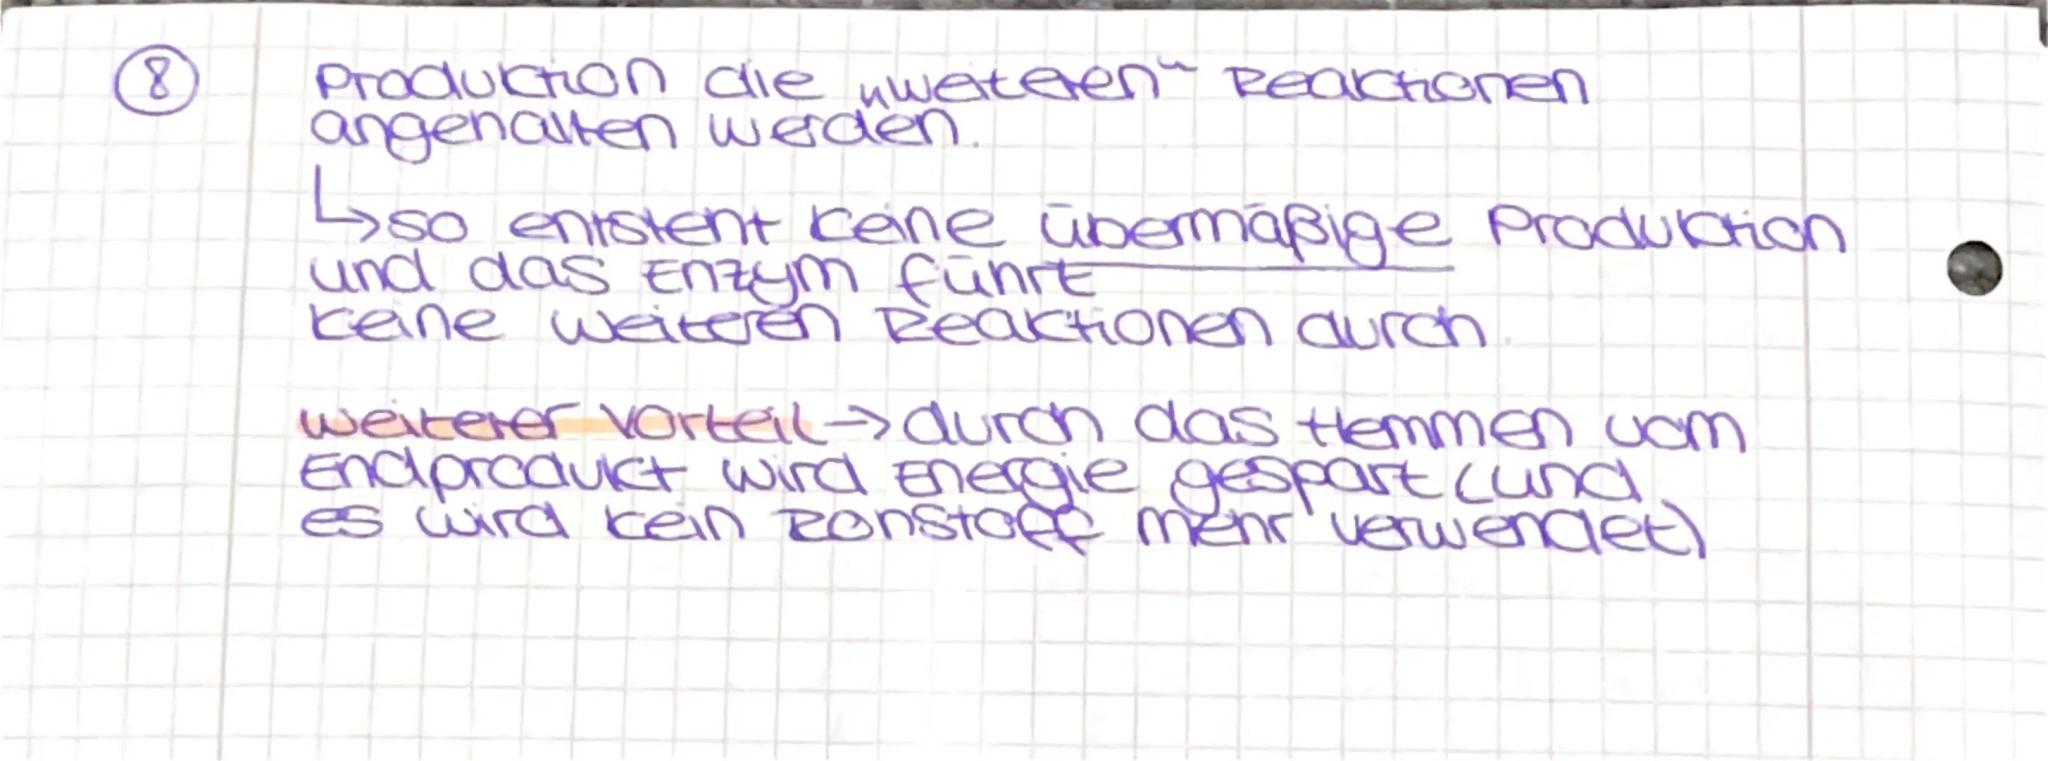 ⑧ Produktion die „weiteren“ Reaktionen
angehalten werden.
↳ so entsteht keine übermäßige Produktion
und das Enzym führt
keine weiteren Reaktionen durch.
weiterer Vorteil → durch das Hemmen vom
Endprodukt wird Energie gespart (und
es wird kein Rohstoff mehr verwendet)